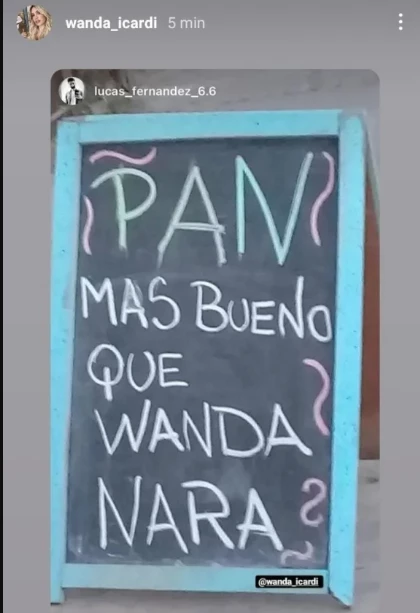 wanda_icardi 5 min
lucas_fernandez_6.6
PAN
MAS BUENO
QUE
WANDA
NARA
@wanda_icardi